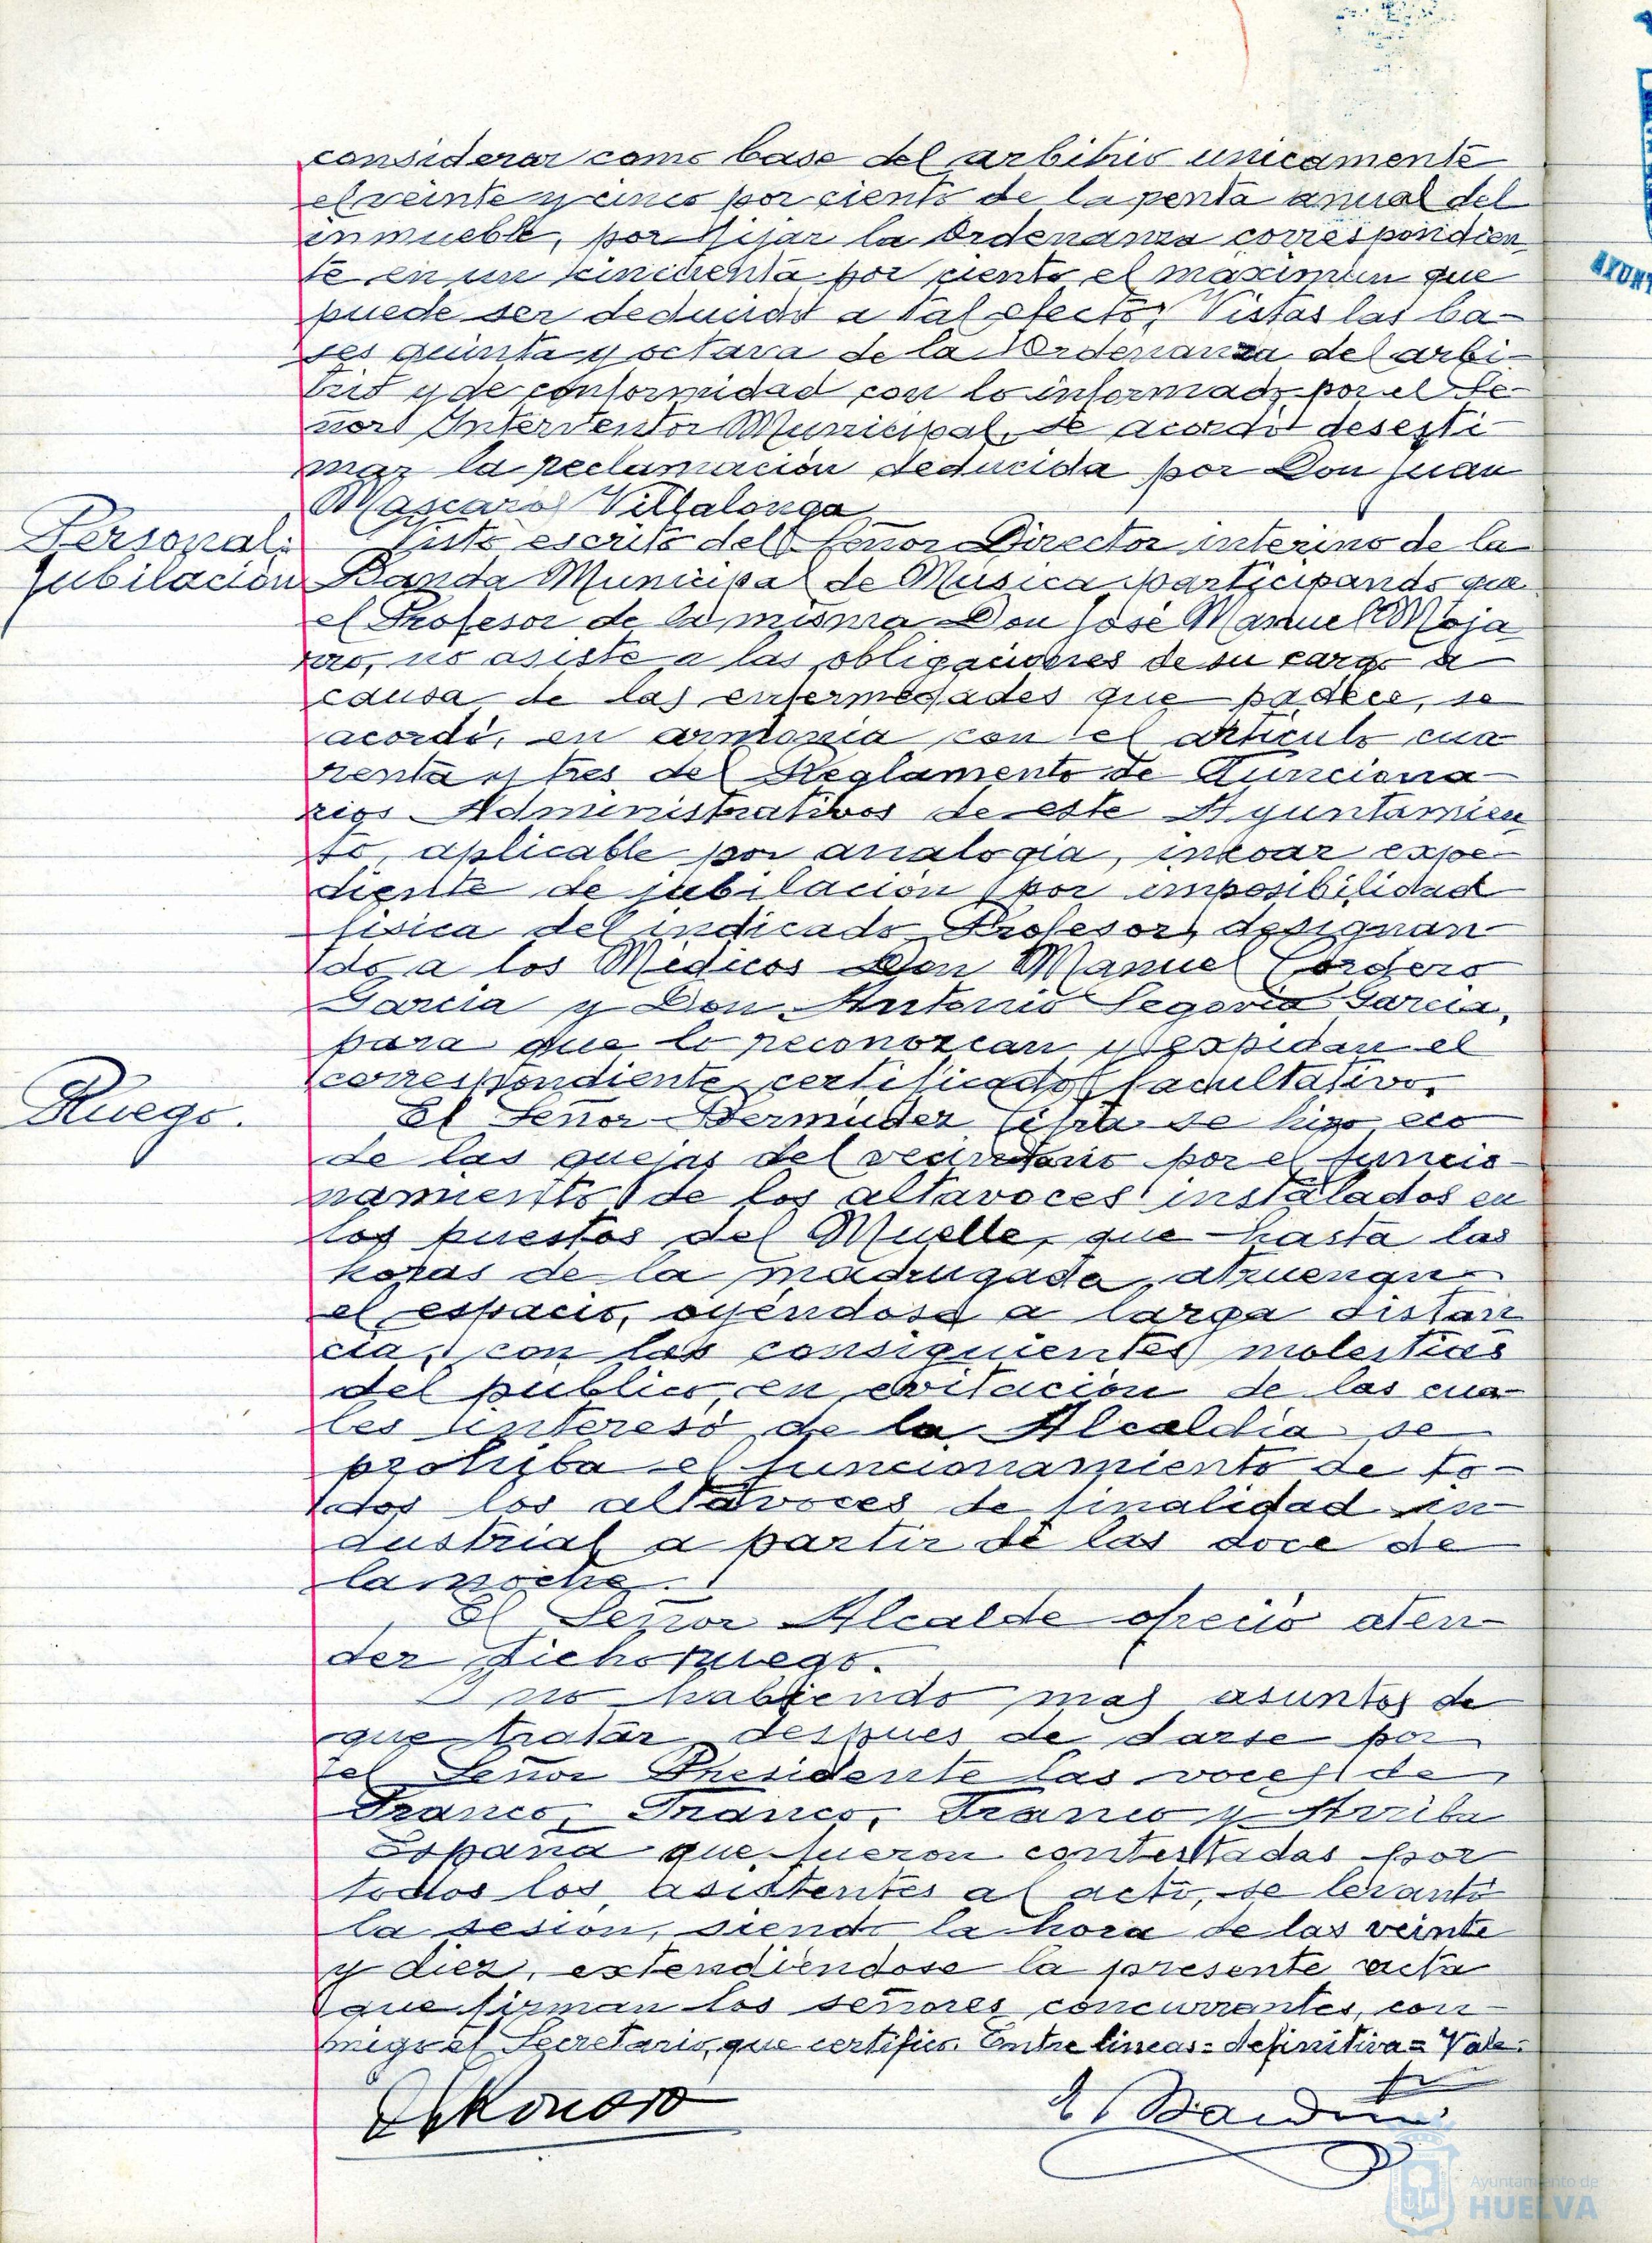 considerar como base del arbitrio unicamente
el veinte y cinco por ciento de la renta anual del
inmueble, por fijar la Ordenanza correspondien
te en un cincuenta por ciento el maximun que
puede ser deducido a tal efecto; Vistas las ba-
ses quinta y octava de la Ordenanza del arbi-
trio y de conformidad con lo informado por el Se-
ñor Interventor Municipal, se acordó desesti
mar la reclamación deducida por Don Juan
Mascaró Villalonga.
Personal:
Jubilación
Visto escrito del Señor Director interino de la
Banda Municipal de Música participando que
el Profesor de la misma Don José Manuel Moja
rro, no asiste a las obligaciones de su cargo a
causa de las enfermedades que padece, se
acordó, en armonia con el articulo cua
renta y tres del Reglamento de Funciona-
rios Administrativos de este Ayuntamien
to, aplicable por analogia, incoar expe-
diente de jubilación por imposibilidad
fisica del indicado Profesor, designan-
do a los Médicos Don Manuel Cordero
Garcia y Don Antonio Segovia Garcia,
para que lo reconozcan y expidan el
correspondiente certificado facultativo.
Ruego.
El Señor Bermudez se hizo eco
de las quejas del vecindario por el funcio-
namiento de los altavoces instalados en
los puestos del Muelle, que hasta las
horas de la madrugada, atruenan
el espacio, oyéndose a larga distan
cia, con las consiguientes molestias
del publico, en evitación de las cua-
les interesó de la Alcaldia se
prohiba el funcionamiento de to-
dos los altavoces de finalidad in-
dustrial a partir de las doce de
la noche.
El Señor Alcalde ofreció aten-
der dicho ruego.
Y no habiendo mas asuntos de
que tratar despues de darse por
el Señor Presidente las voces de
Franco, Franco, Franco y Arriba
España que fueron contestadas por
todos los asistentes al acto, se levantó
la sesión, siendo la hora de las veinte
y diez, extendiéndose la presente acta
que firman los señores concurrantes, con-
migo el Secretario, que certifico. Entre lineas = definitiva = Vale.
Ayuntamiento de
HUELVA